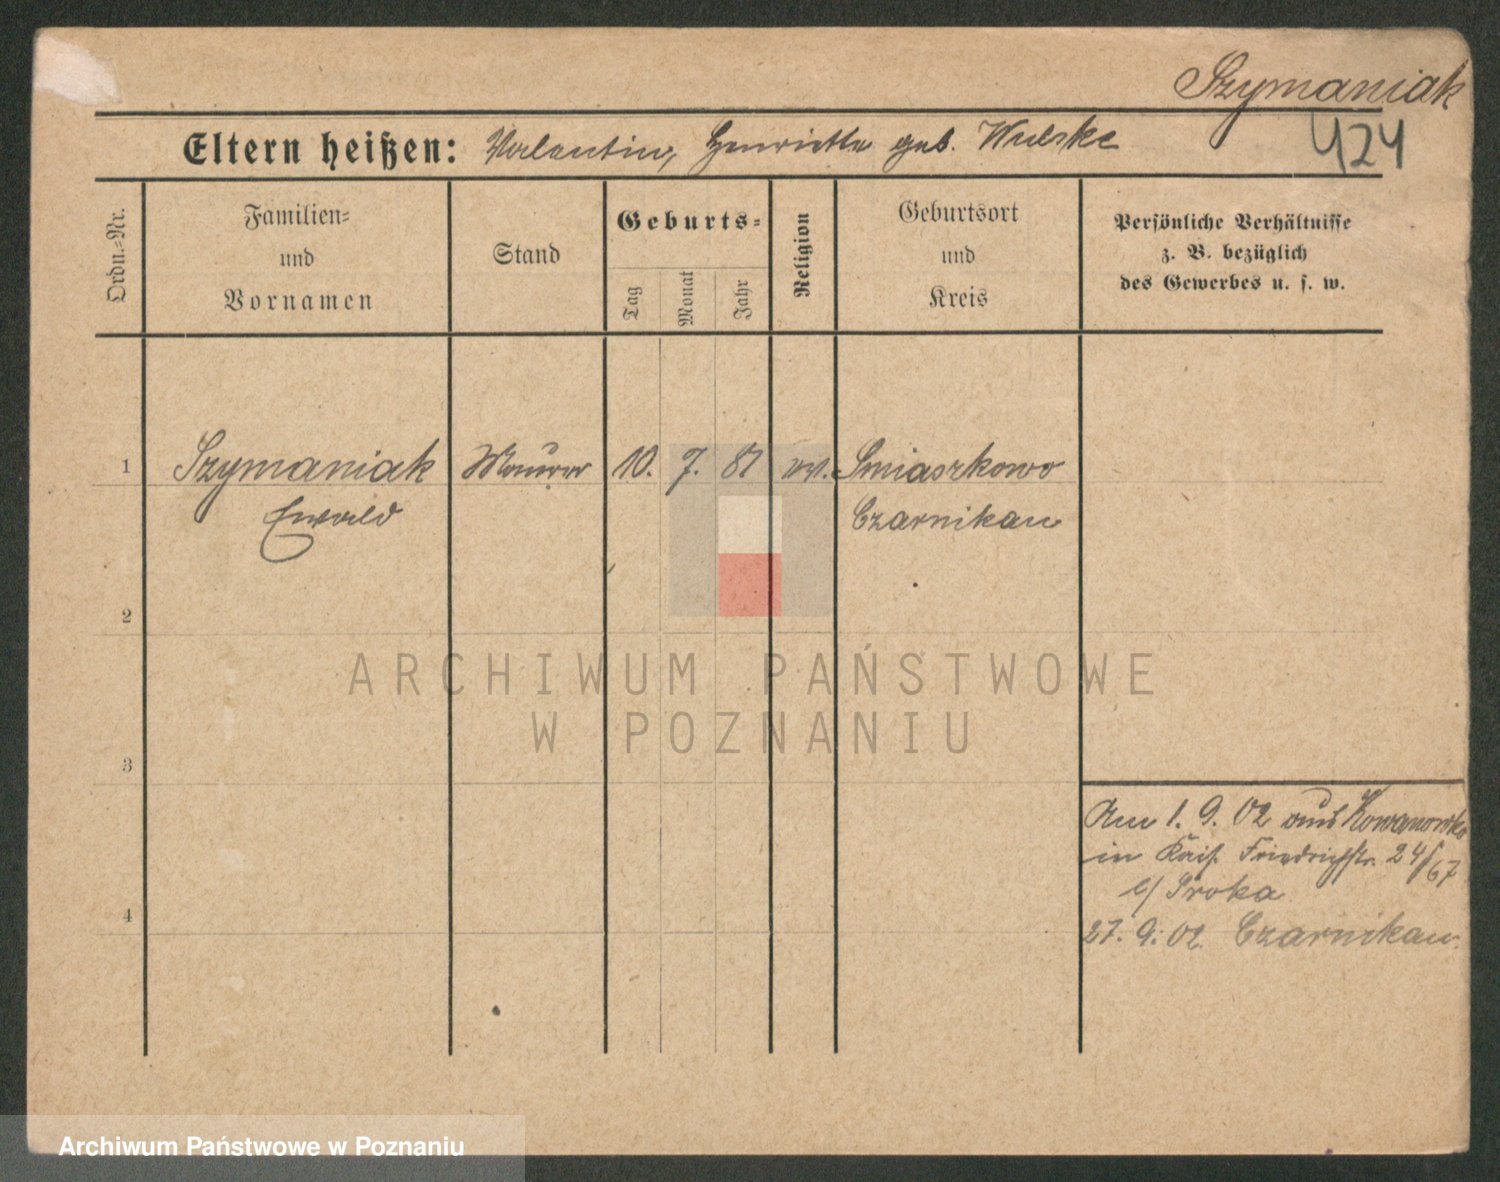 Szymaniak
424
Eltern heißen: Valentin, Henriette geb. Wulske
Ordn.-Nr.
Familien-
und
Vornamen
Stand
Geburts-
Tag
Monat
Jahr
Religion
Geburtsort
und
Kreis
Persönliche Verhältnisse
z. B. bezüglich
des Gewerbes u. s. w.
1 Szymaniak Maurer 10. 7. 81 ev. Smiaszkowo
Ewald Czarnikau
2
3
4
Am 1. 9. 02 aus Kowanowko
in Kais. Friedrichstr. 24/67
b/ Sroka
27. 9. 02 Czarnikau.
ARCHIWUM PAŃSTWOWE
W POZNANIU
Archiwum Państwowe w Poznaniu